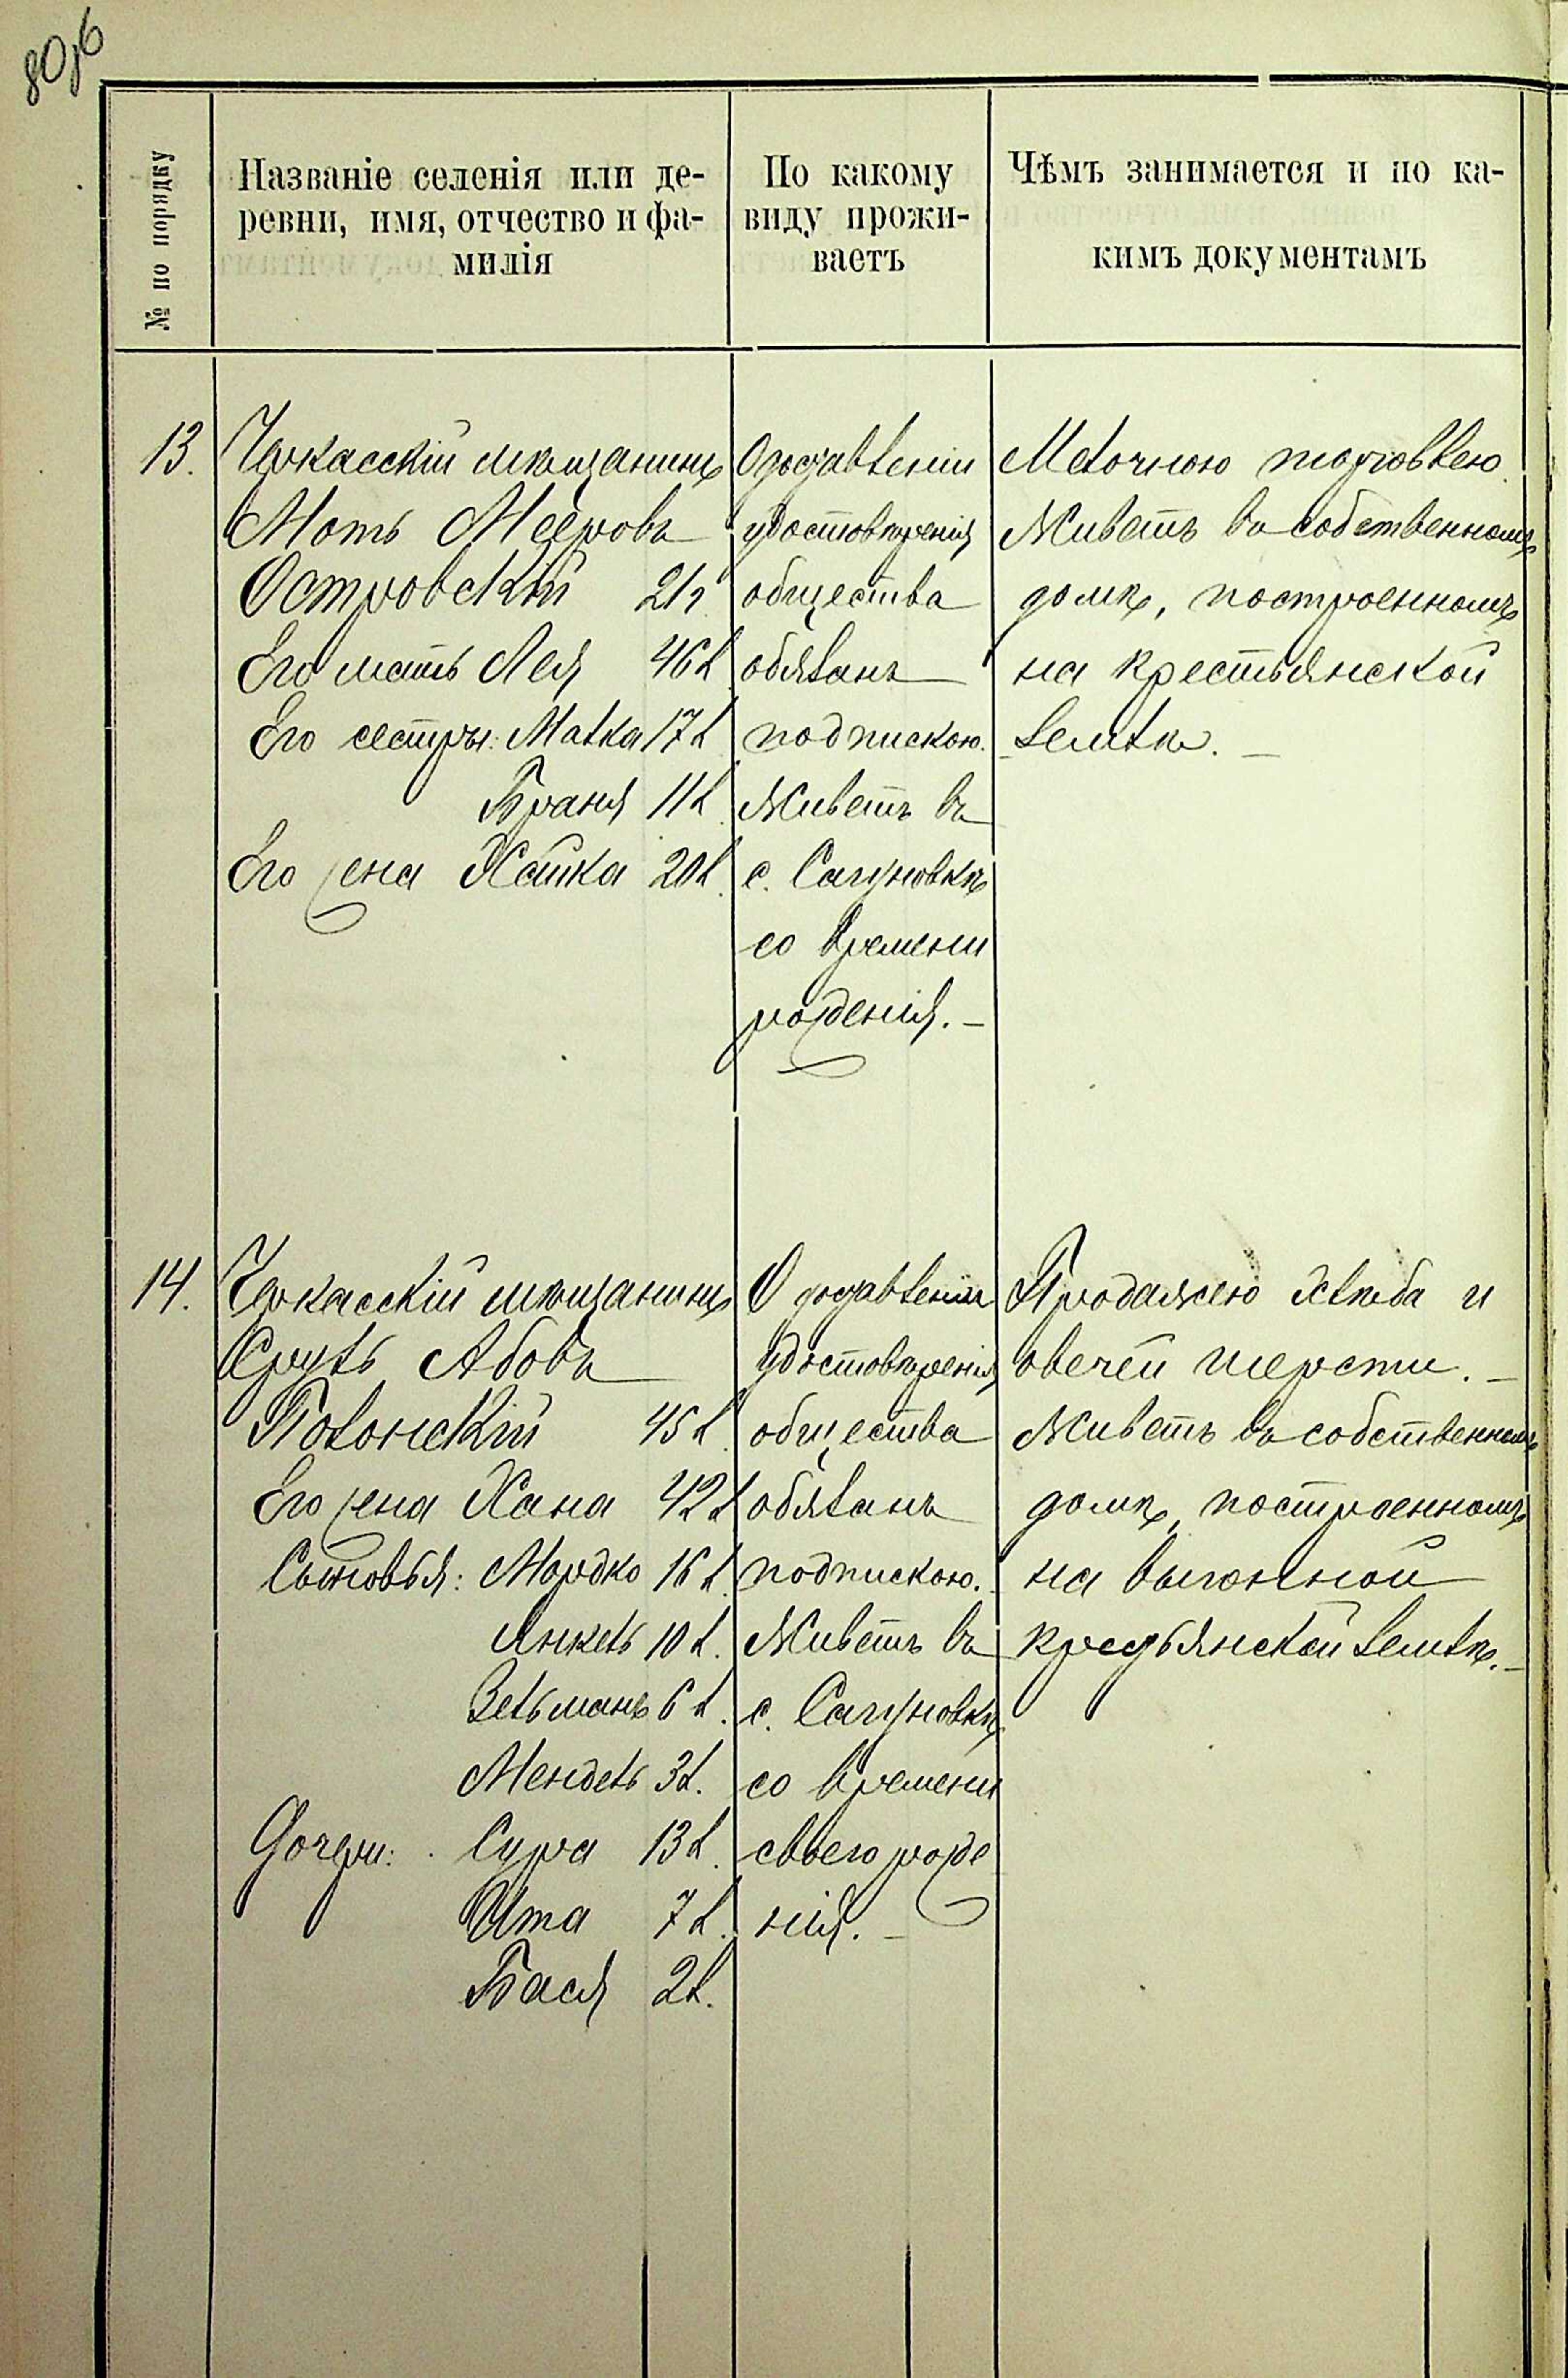 80об
№ по порядку
Названіе селенія или де-
ревни, имя, отчество и фа-
милія
По какому
виду прожи-
ваетъ
Чѣмъ занимается и по ка-
кимъ документамъ
13.
Черкасскій мѣщанинъ
Моть Мееровъ
Островскій 21 г.
Его мать Лея 46 л.
Его сестры: Малка 17 л.
Браня 11 л.
Его жена Хайка 20 л.
О доставленіи
удостовѣренія
общества
обязанъ
подпискою.
Живетъ въ
с. Сагуновкѣ
со времени
рожденія. –
Мелочною торговлею.
Живетъ въ собственномъ
домѣ, построенномъ
на крестьянской
землѣ. –
14.
Черкасскій мѣщанинъ
Сруль Абовъ
Полонскій 45 л.
Его жена Хана 42 л.
Сыновья: Мордко 16 л.
Янкель 10 л.
Зельманъ 6 л.
Мендель 3 л.
Дочери: Сура 13 л.
Ита 7 л.
Бася 2 л.
О доставленіи
удостовѣренія
общества
обязанъ
подпискою.
Живетъ въ
с. Сагуновкѣ
со времени
своего рожде
нія. –
Продажею хлѣба и
овечей шерсти. –
Живетъ въ собственномъ
домѣ, построенномъ
на выгонной
крестьянской землѣ. –